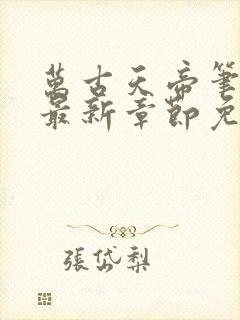 萬古天帝筆
最新章節免
張岱梨